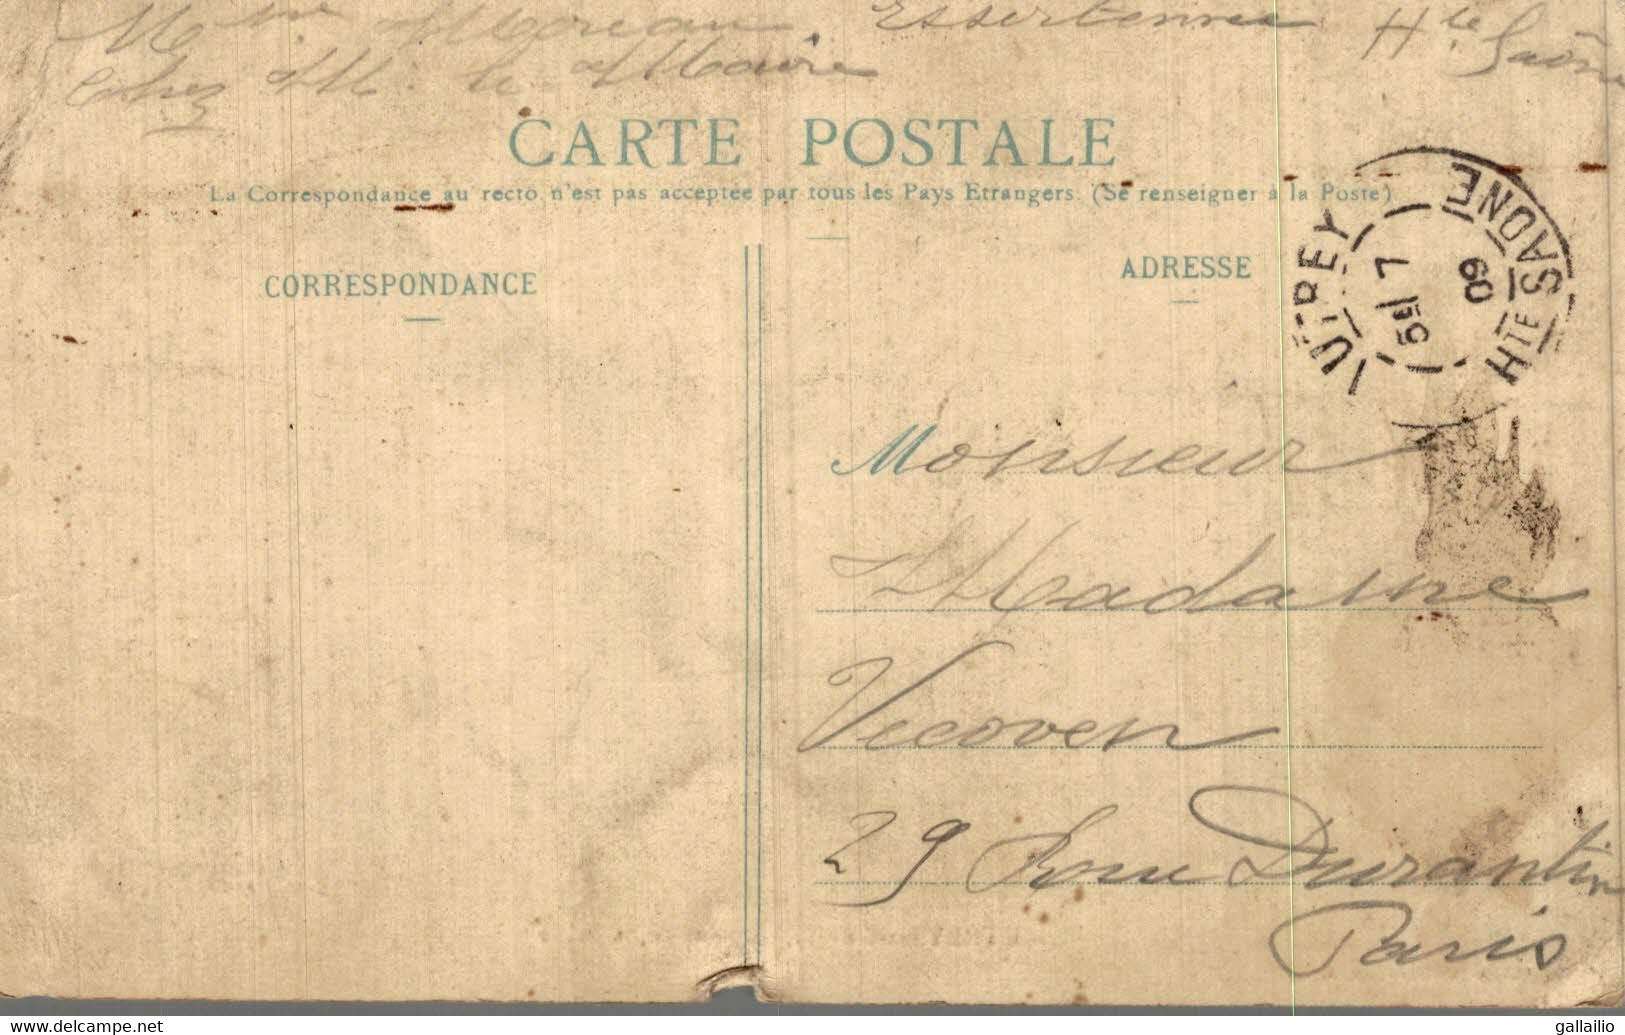 Mme Moreau Essertenne Hte Saône
Chez M. le Maire
CARTE POSTALE
La Correspondance au recto n'est pas acceptée par tous les Pays Etrangers. (Se renseigner à la Poste)
CORRESPONDANCE
ADRESSE
AUTREY
HTE SAONE
09
Monsieur
Madame
Vecoven
29 Rue Durantin
Paris
www.delcampe.net
gallailio